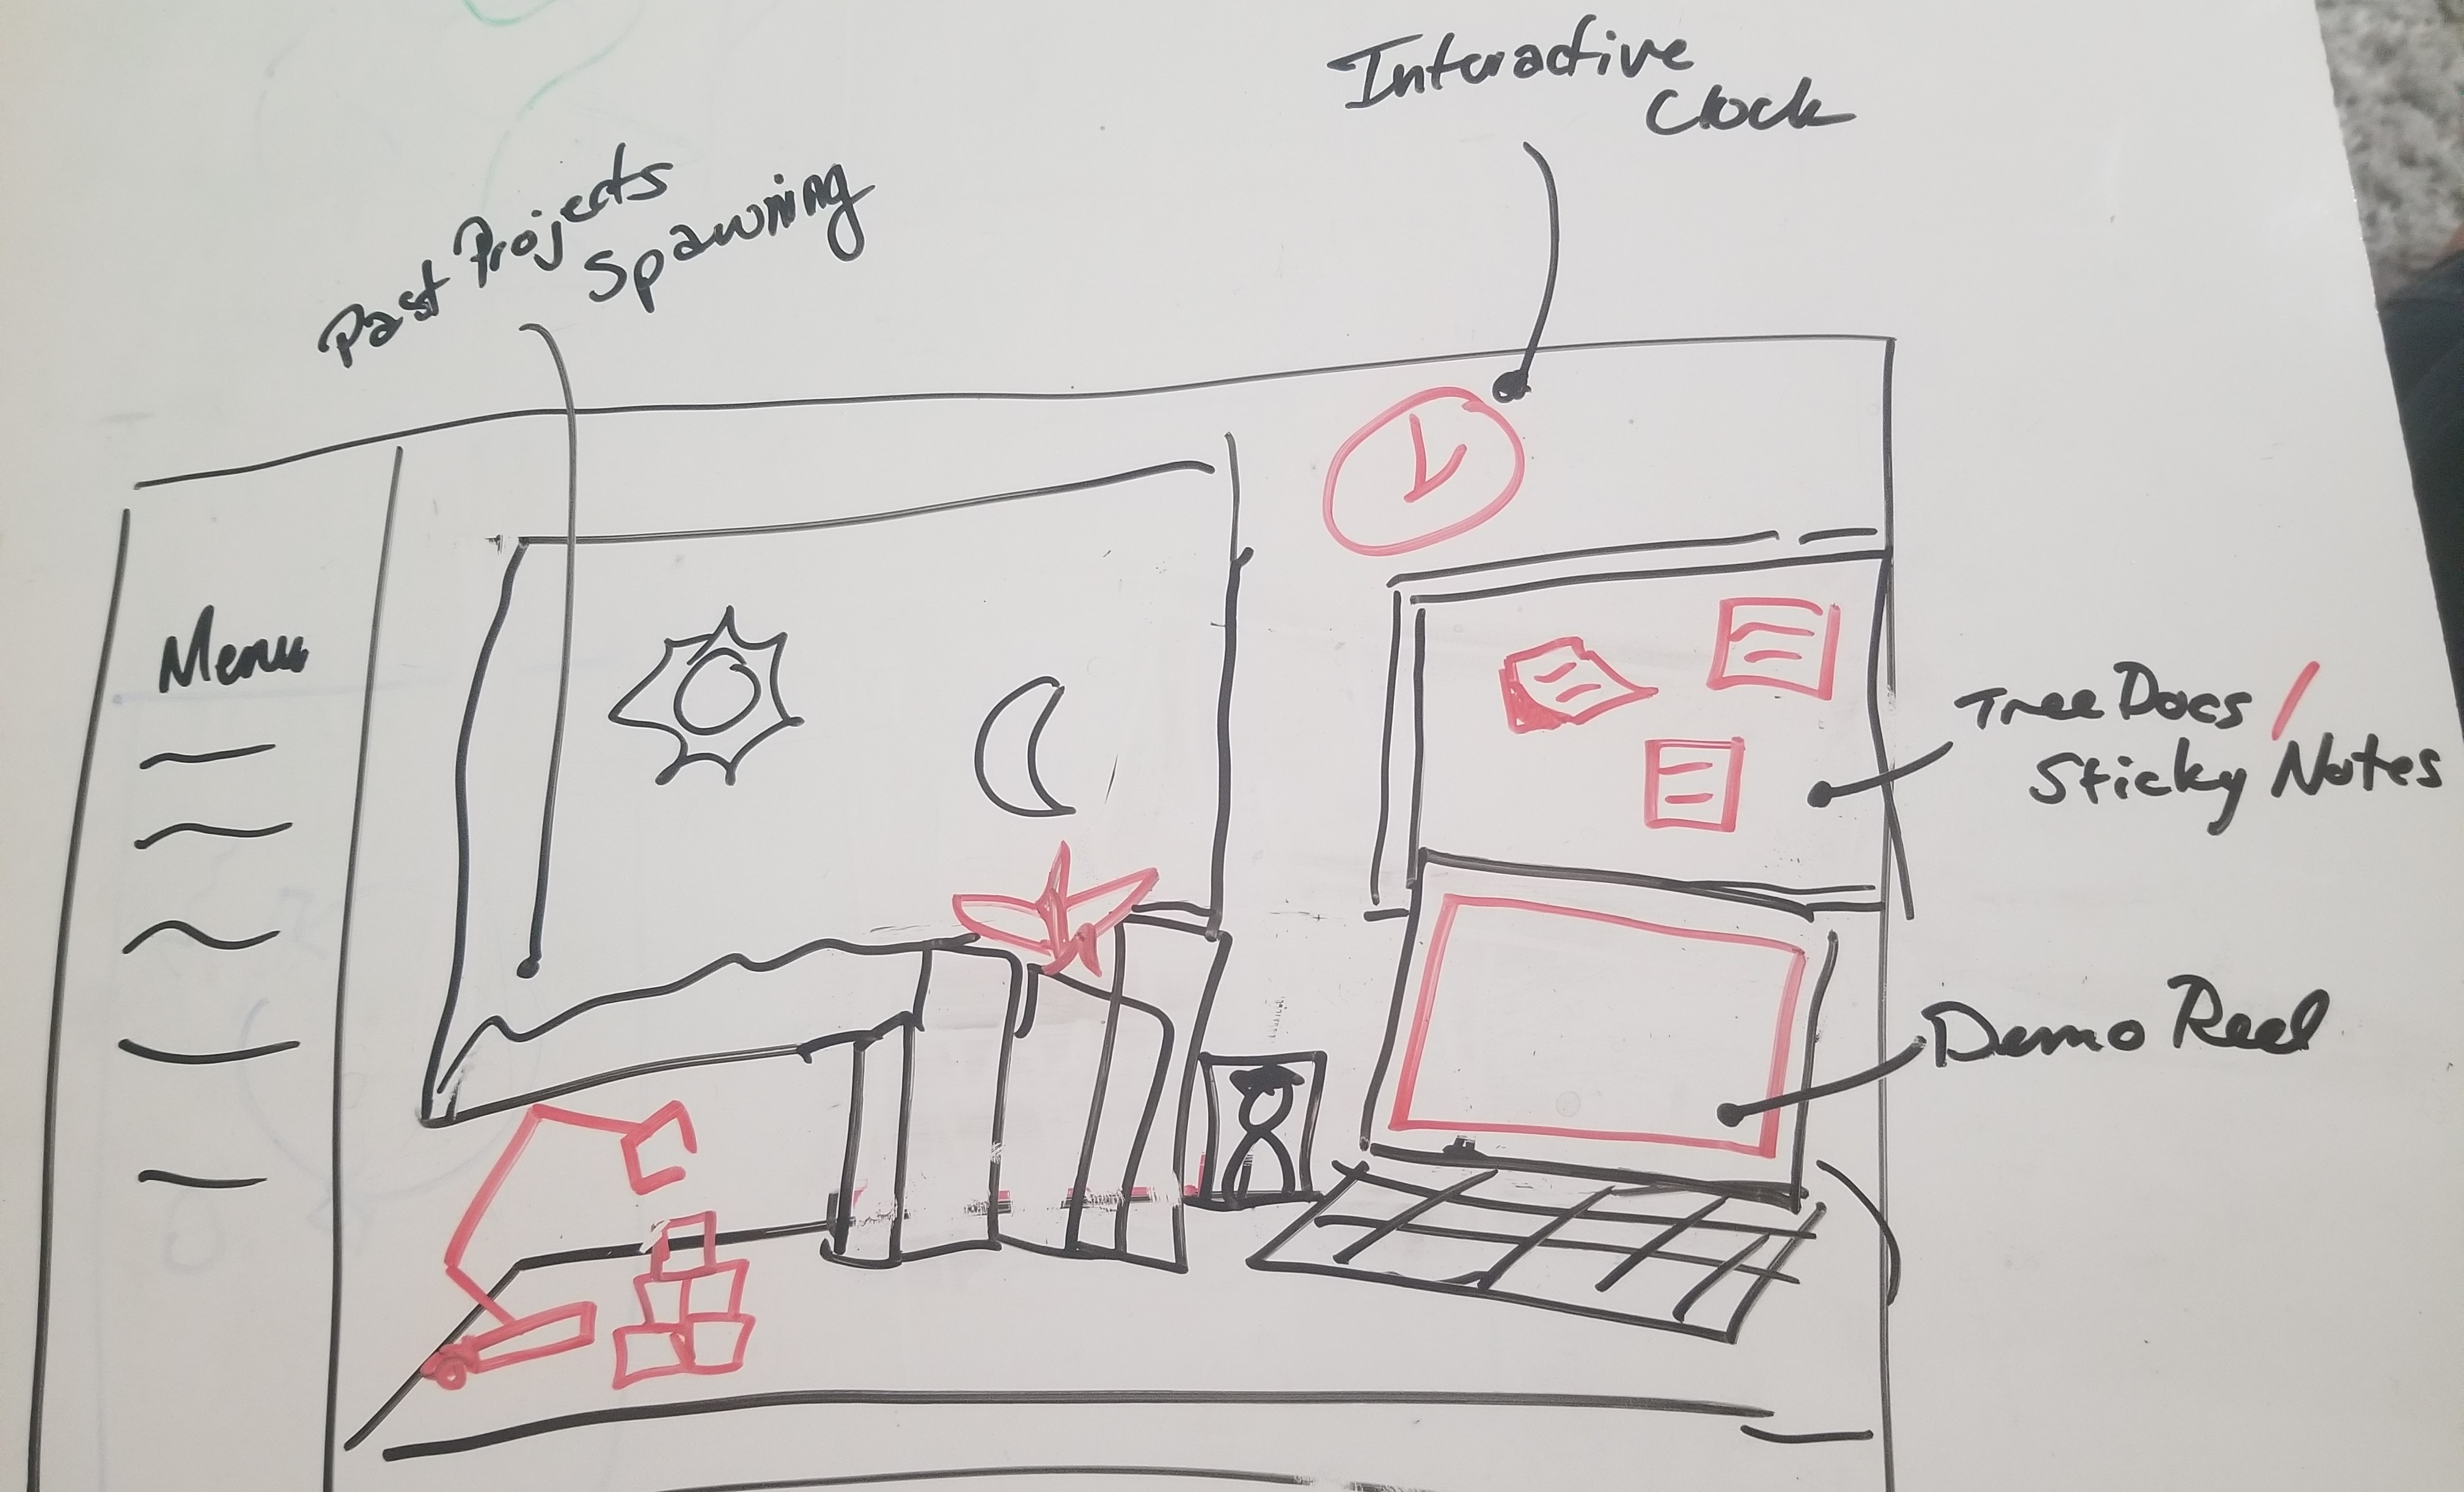 Interactive
Clock
Past Projects
Spawning
Menu
Tree Docs /
Sticky Notes
Demo Reel